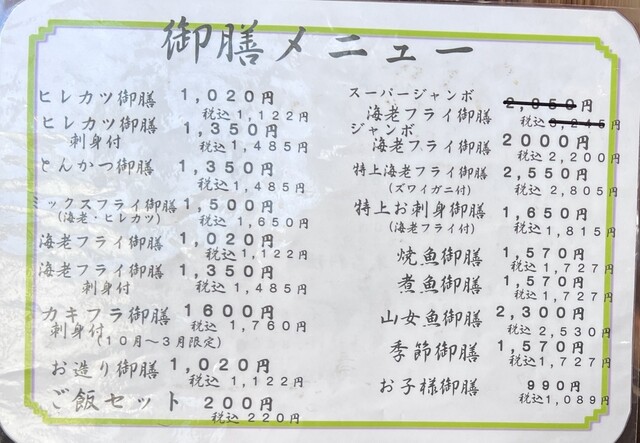 御膳メニュー
ヒレカツ御膳 1,020円
税込 1,122円
ヒレカツ御膳 1,350円
刺身付 税込 1,485円
とんかつ御膳 1,350円
税込 1,485円
ミックスフライ御膳 1,500円
(海老・ヒレカツ) 税込 1,650円
海老フライ御膳 1,020円
税込 1,122円
海老フライ御膳 1,350円
刺身付 税込 1,485円
カキフラ御膳 1600円
刺身付 税込 1,760円
(10月〜3月限定)
お造り御膳 1,020円
税込 1,122円
ご飯セット 200円
税込 220円
スーパージャンボ
海老フライ御膳 2,950円
税込 3,245円
ジャンボ
海老フライ御膳 2000円
税込 2,200円
特上海老フライ御膳 2,550円
(ズワイガニ付) 税込 2,805円
特上お刺身御膳 1,650円
(海老フライ付) 税込 1,815円
焼魚御膳 1,570円
税込 1,727円
煮魚御膳 1,570円
税込 1,727円
山女魚御膳 2,300円
税込 2,530円
季節御膳 1,570円
税込 1,727円
お子様御膳 990円
税込 1,089円